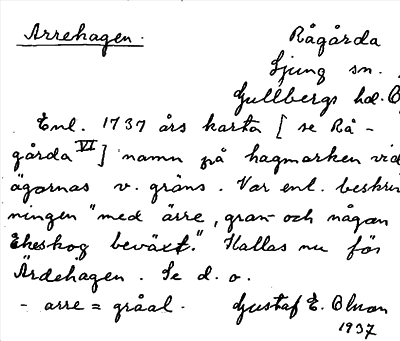 Arrehagen.
Rågårda
Ljung sn.
Gullbergs hd.
Enl. 1737 års karta [ se Rå-
gårda VI ] namn på hagmarken vid
ägornas v. gräns. Var enl. beskriv
ningen "med ärre, gran- och någon
Ekeskog beväxt." Kallas nu för
Ärdehagen. Se d. o.
- arre = gråal. Gustaf E. Olsson
1937